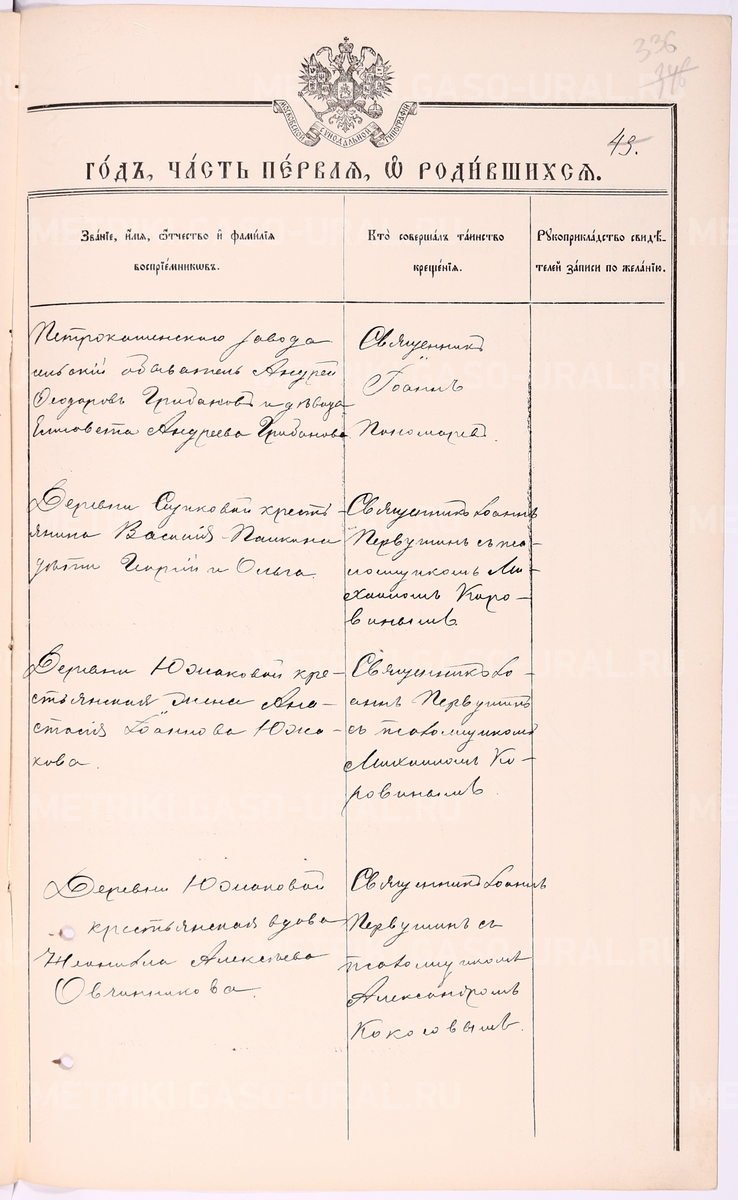 336
45.
МОСКОВСКОЙ СѴНОДАЛЬНОЙ ТИПОГРАФІИ
ГО́ДЪ, ЧА́СТЬ ПЕ́РВАѦ, Ѡ҆ РОДИ́ВШИХСѦ.
Зва́нїе, и҆́мѧ, ѻ҆́тчество и҆ фами́лїѧ
воспрїе́мникѡвъ.
Кто̀ соверша́лъ та́инство
креще́нїѧ.
Рꙋкоприкла́дство свидѣ́-
телей за́писи по жела́нїю.
Петрокаменского завода
сельскій обыватель Андрей
Ѳеодоровъ Грибановъ и дѣвица
Елисовета Андреева Грибанова
Священникъ
Іоаннъ
Пономаревъ
Деревни крестъ-
янина Василія Пашкина
дѣти Георгій и Ольга.
Священникъ Іоаннъ
Первушинъ съ пса-
ломщикомъ Ми-
хаиломъ Коро-
винымъ.
Деревни Южаковой кре-
стьянская жена Ана-
стасія Іоаннова Южа-
кова.
Священникъ Іо-
аннъ Первушинъ
съ псаломщикомъ
Михаиломъ Ко-
ровинымъ.
Деревни Южаковой
крестьянская вдова
Алексѣева
Овчинникова.
Священникъ Іоаннъ
Первушинъ съ
псаломщикомъ
Александромъ
Кокосовымъ.
METRIKI.GASO-URAL.RU